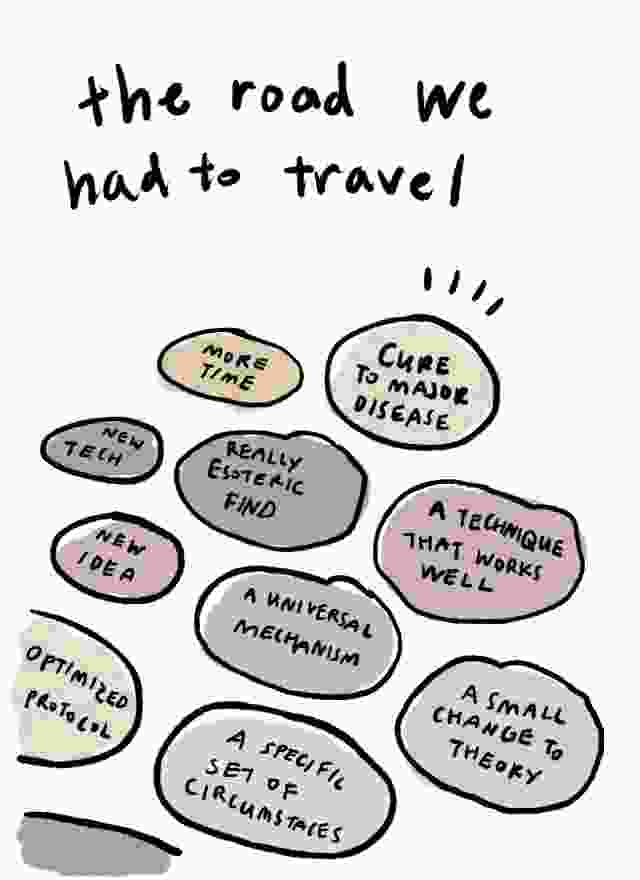 the road we
had to travel
MORE
TIME
CURE
TO MAJOR
DISEASE
NEW
TECH
REALLY
ESOTERIC
FIND
A TECHNIQUE
THAT WORKS
WELL
NEW
IDEA
A UNIVERSAL
MECHANISM
OPTIMIZED
PROTOCOL
A SMALL
CHANGE TO
THEORY
A SPECIFIC
SET OF
CIRCUMSTACES